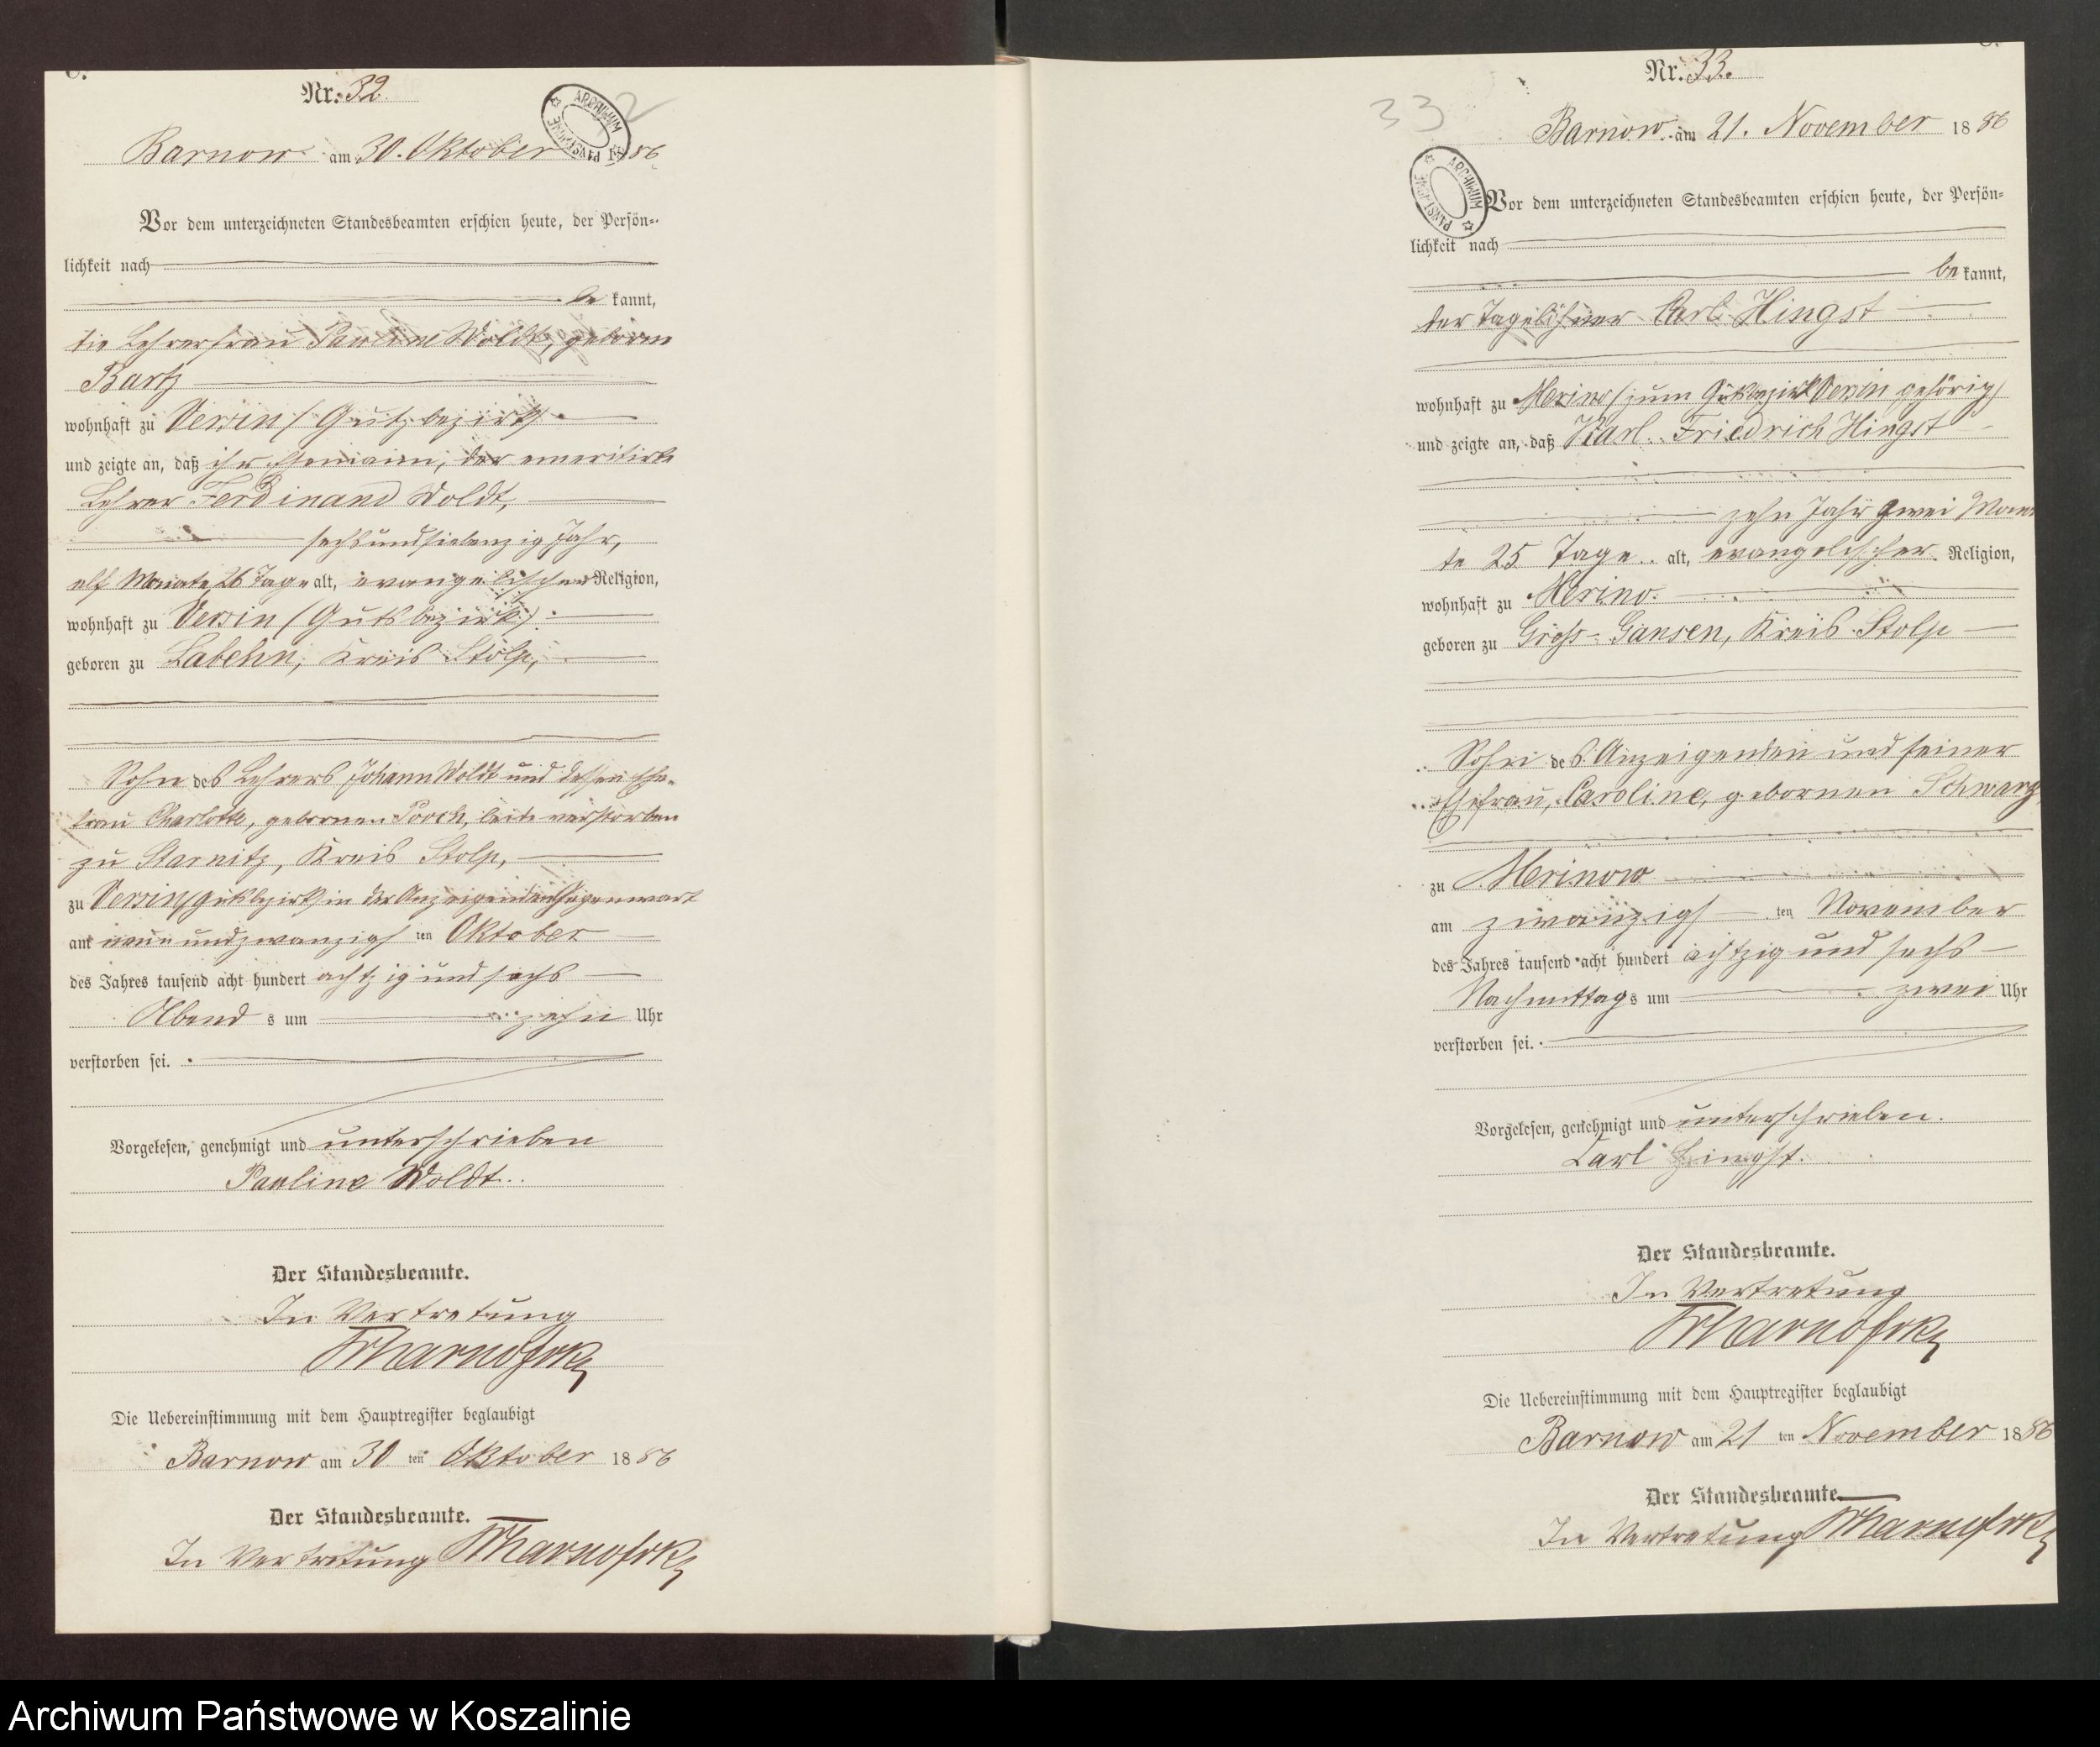 Nr. 32.
Barnow am 30. Oktober 1886
Vor dem unterzeichneten Standesbeamten erschien heute, der Persön-
lichkeit nach
be kannt,
die Lehrerfrau Pauline Woldt, geborne
Bartz
wohnhaft zu Versin (Gutsbezirk)
und zeigte an, daß ihr Ehemann, der emeritirte
Lehrer Ferdinand Woldt,
sechsundsiebenzig Jahr,
elf Monate 26 Tage alt, evangelischer Religion,
wohnhaft zu Versin (Gutsbezirk)
geboren zu Labehn, Kreis Stolp,
Sohn des Lehrers Johann Woldt und dessen Ehe-
frau Charlotte, gebornen Poock, beide verstorben
zu Starnitz, Kreis Stolp,
zu Versin (Gutsbezirk) in der Anzeigenden Gegenwart
am neun und zwanzigs ten Oktober
des Jahres tausend acht hundert achtzig und sechs
Abend s um zehn Uhr
verstorben sei.
Vorgelesen, genehmigt und unterschrieben
Pauline Woldt.
Der Standesbeamte.
In Vertretung
Die Uebereinstimmung mit dem Hauptregister beglaubigt
Barnow am 30 ten Oktober 1886
Der Standesbeamte.
In Vertretung
33
Nr. 33.
Barnow am 21. November 1886
Vor dem unterzeichneten Standesbeamten erschien heute, der Persön-
lichkeit nach
be kannt,
der Tagelöhner Carl Hingst
wohnhaft zu Merino (zum Gutsbezirk Versin gehörig)
und zeigte an, daß Karl Friedrich Hingst
zehn Jahr zwei Mona-
te 25 Tage alt, evangelischer Religion,
wohnhaft zu Merino.
geboren zu Groß-Gansen, Kreis Stolp
Sohn des Anzeigenden und seiner
Ehefrau, Caroline, gebornen Schwarz
zu Merinow
am zwanzigs ten November
des Jahres tausend acht hundert achtzig und sechs
Nachmittags um zwei Uhr
verstorben sei.
Vorgelesen, genehmigt und unterschrieben.
Carl Hingst.
Der Standesbeamte.
In Vertretung
Die Uebereinstimmung mit dem Hauptregister beglaubigt
Barnow am 21 ten November 1886
Der Standesbeamte.
In Vertretung
Archiwum Państwowe w Koszalinie